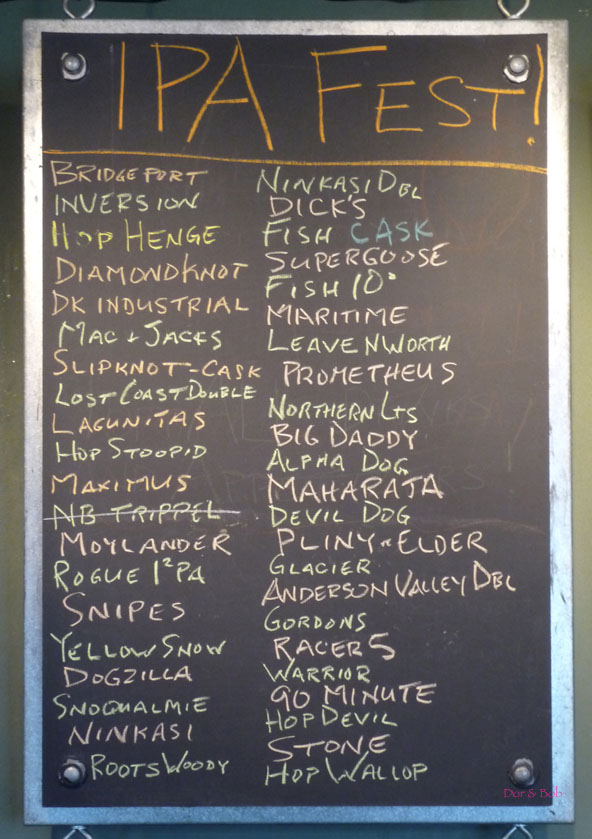 IPA FEST!
BRIDGEPORT
INVERSION
HOP HENGE
DIAMONDKNOT
DK INDUSTRIAL
MAC + JACKS
SLIPKNOT-CASK
LOST COAST DOUBLE
LAGUNITAS
HOP STOOPID
MAXIMUS
NB TRIPPEL
MOYLANDER
ROGUE I²PA
SNIPES
YELLOW SNOW
DOGZILLA
SNOQUALMIE
NINKASI
ROOTS WOODY
NINKASI DBL
DICK'S
FISH CASK
SUPERGOOSE
FISH 10°
MARITIME
LEAVENWORTH
PROMETHEUS
NORTHERN LTS
BIG DADDY
ALPHA DOG
MAHARAJA
DEVIL DOG
PLINY ELDER
GLACIER
ANDERSON VALLEY DBL
GORDONS
RACER 5
WARRIOR
90 MINUTE
HOP DEVIL
STONE
HOP WALLOP
Dor & Bob